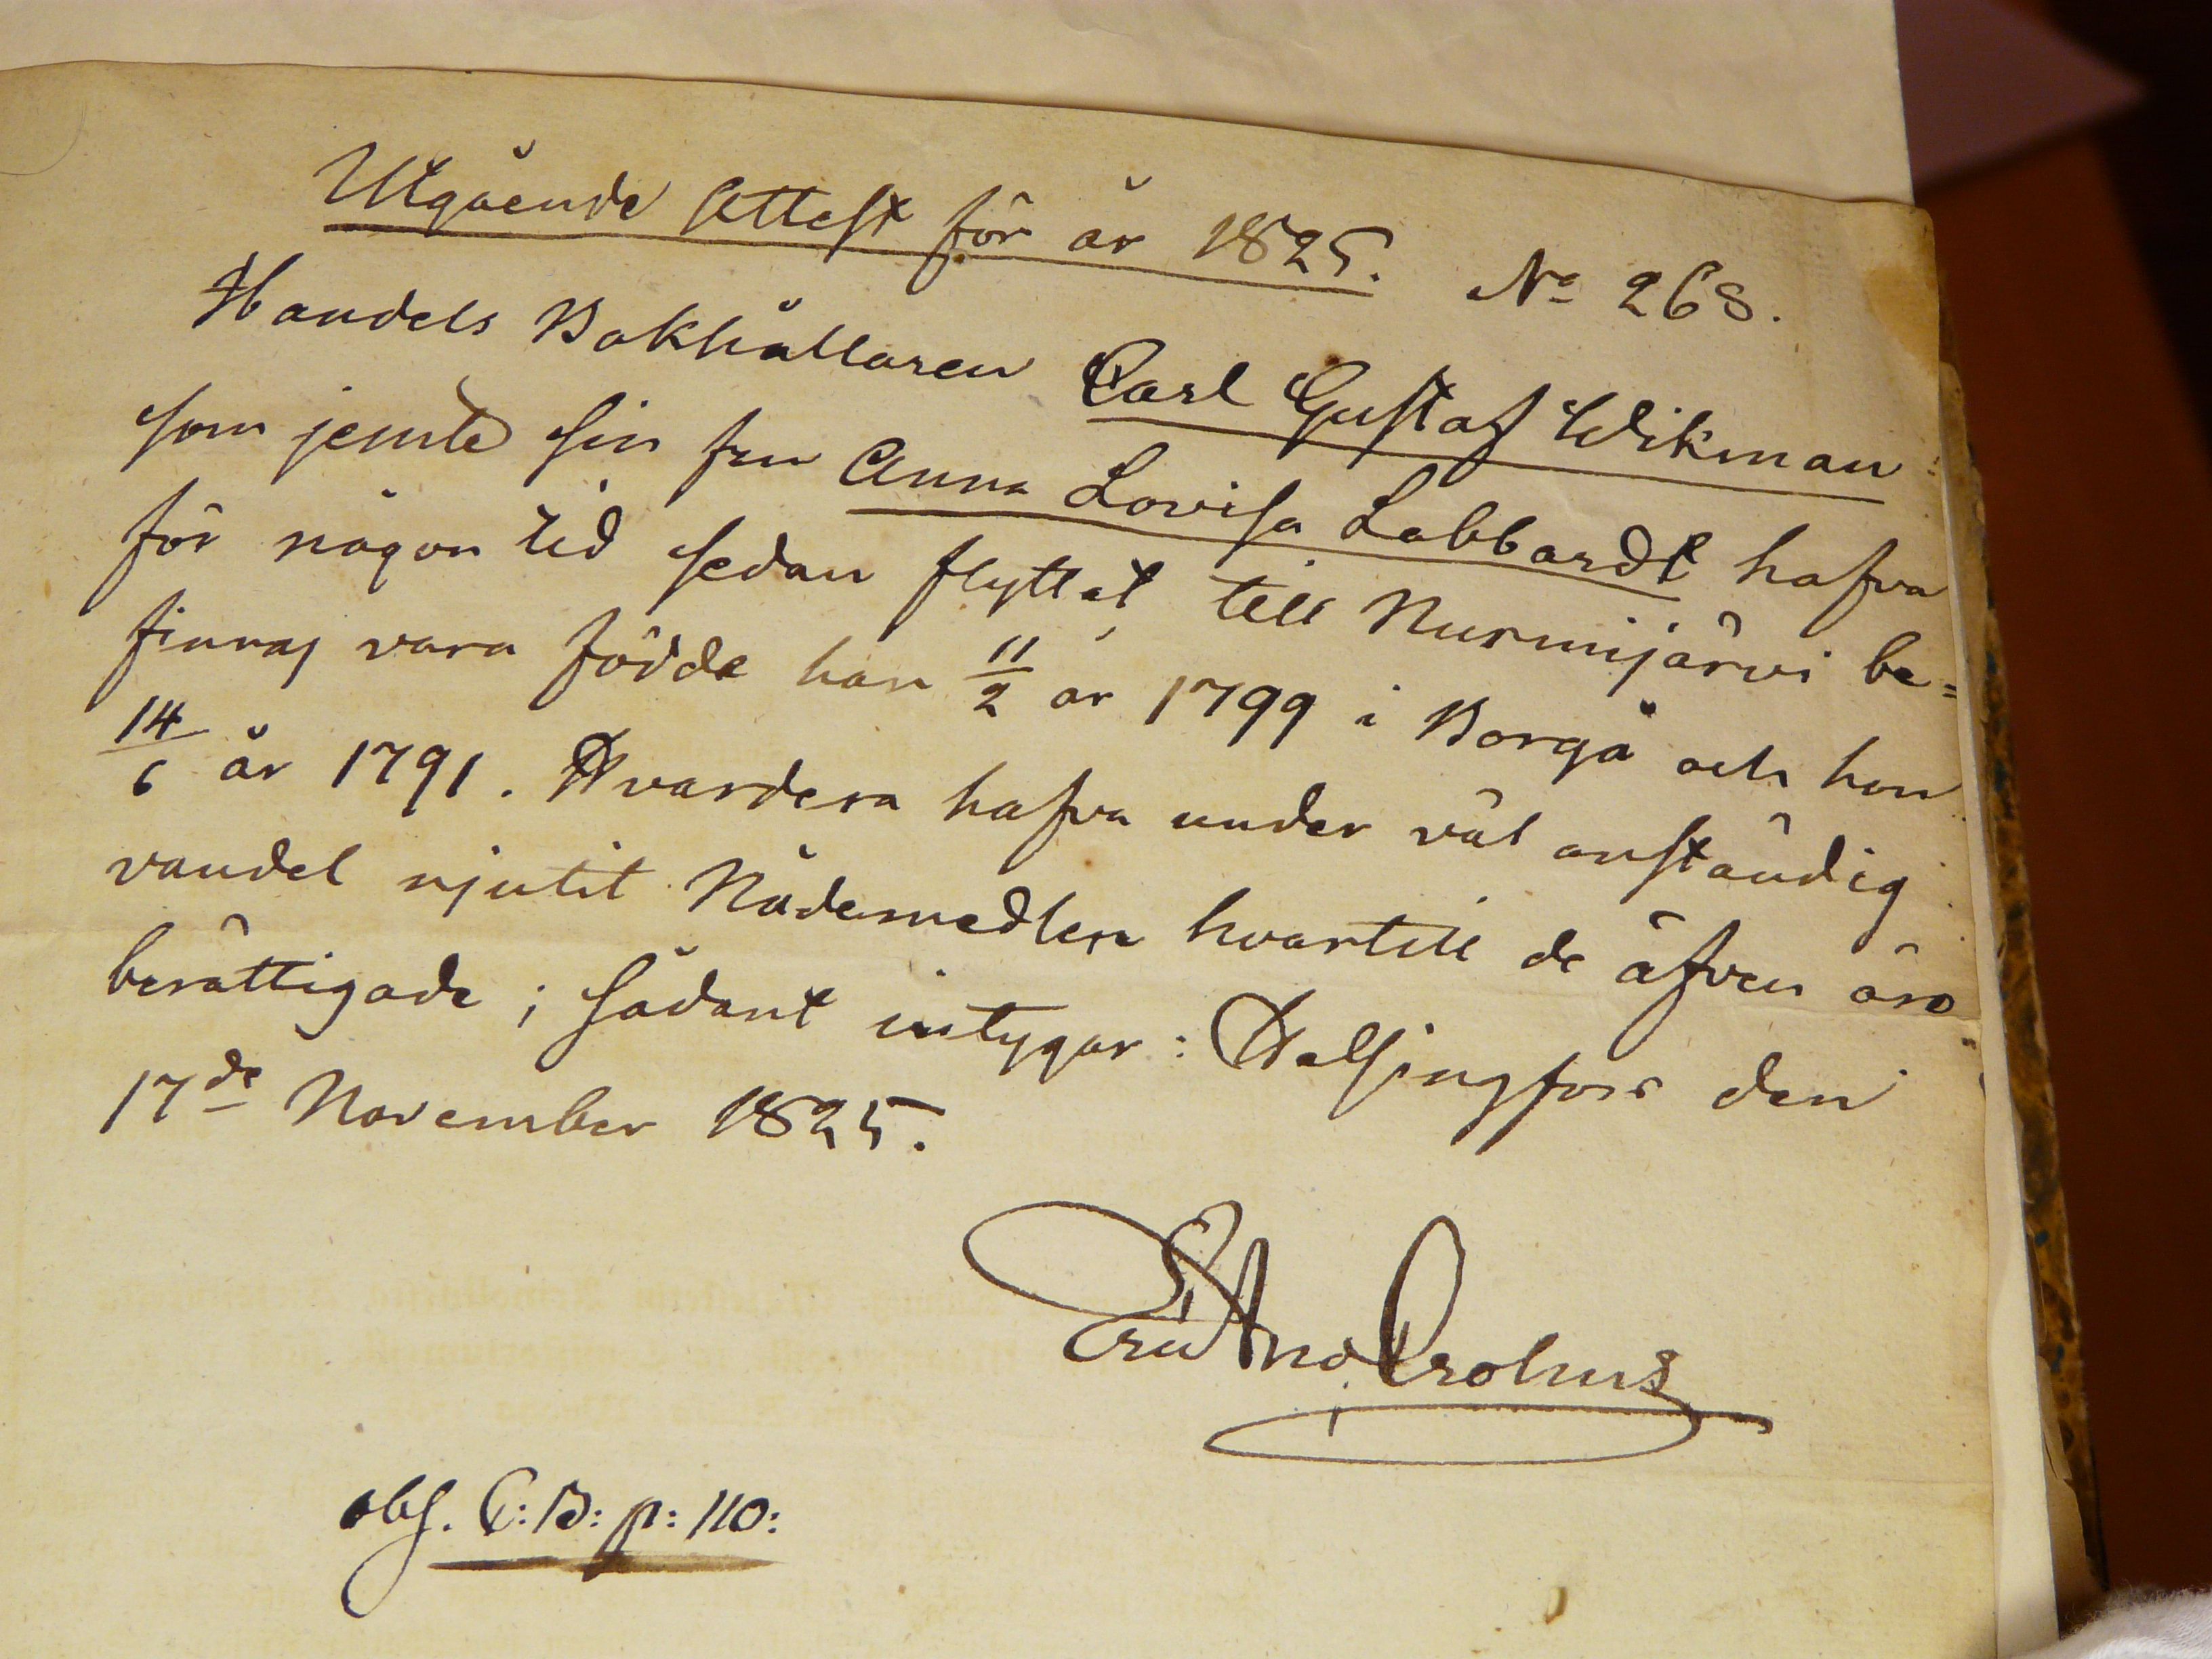 Utgående Attest för år 1825. No 268.
Handels Bokhållaren Carl Gustaf Wikman
som jemte sin fru Anna Lovisa Labbardt hafva
för någon tid sedan flyttat till Nurmijärvi be=
finnas vara födde han 11/2 år 1799 i Borgå och hon
14/6 år 1791. Hvardera hafva under väl anständig
vandel njutit Nådemedlen hvartill de äfven äro
berättigade; sådant intygar: Helsingfors den
17de November 1825.
Crohns
obs. C:B: p: 110: